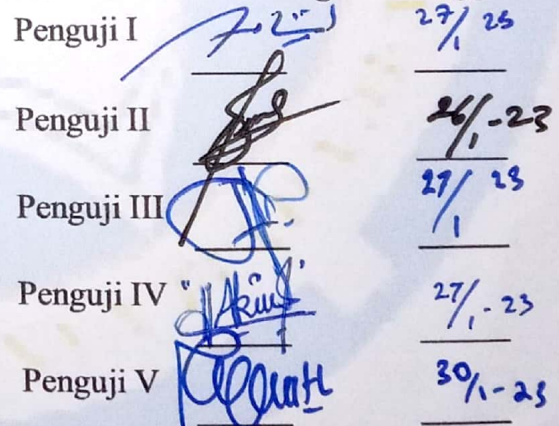 Penguji I 27/1 23
Penguji II 26/1-23
Penguji III 27/1 23
Penguji IV 27/1-23
Penguji V 30/1-23